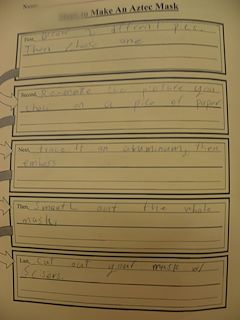 Name:
Steps to Make An Aztec Mask
First, Draw 3 different pics.
Then chose one.
Second, Re-make the picture you
chose on a pice of paper
Next, trace it on aluminum, then
emboss
Then, Smooth out the whole
mask.
Last, cut out your mask w/
Scisors.